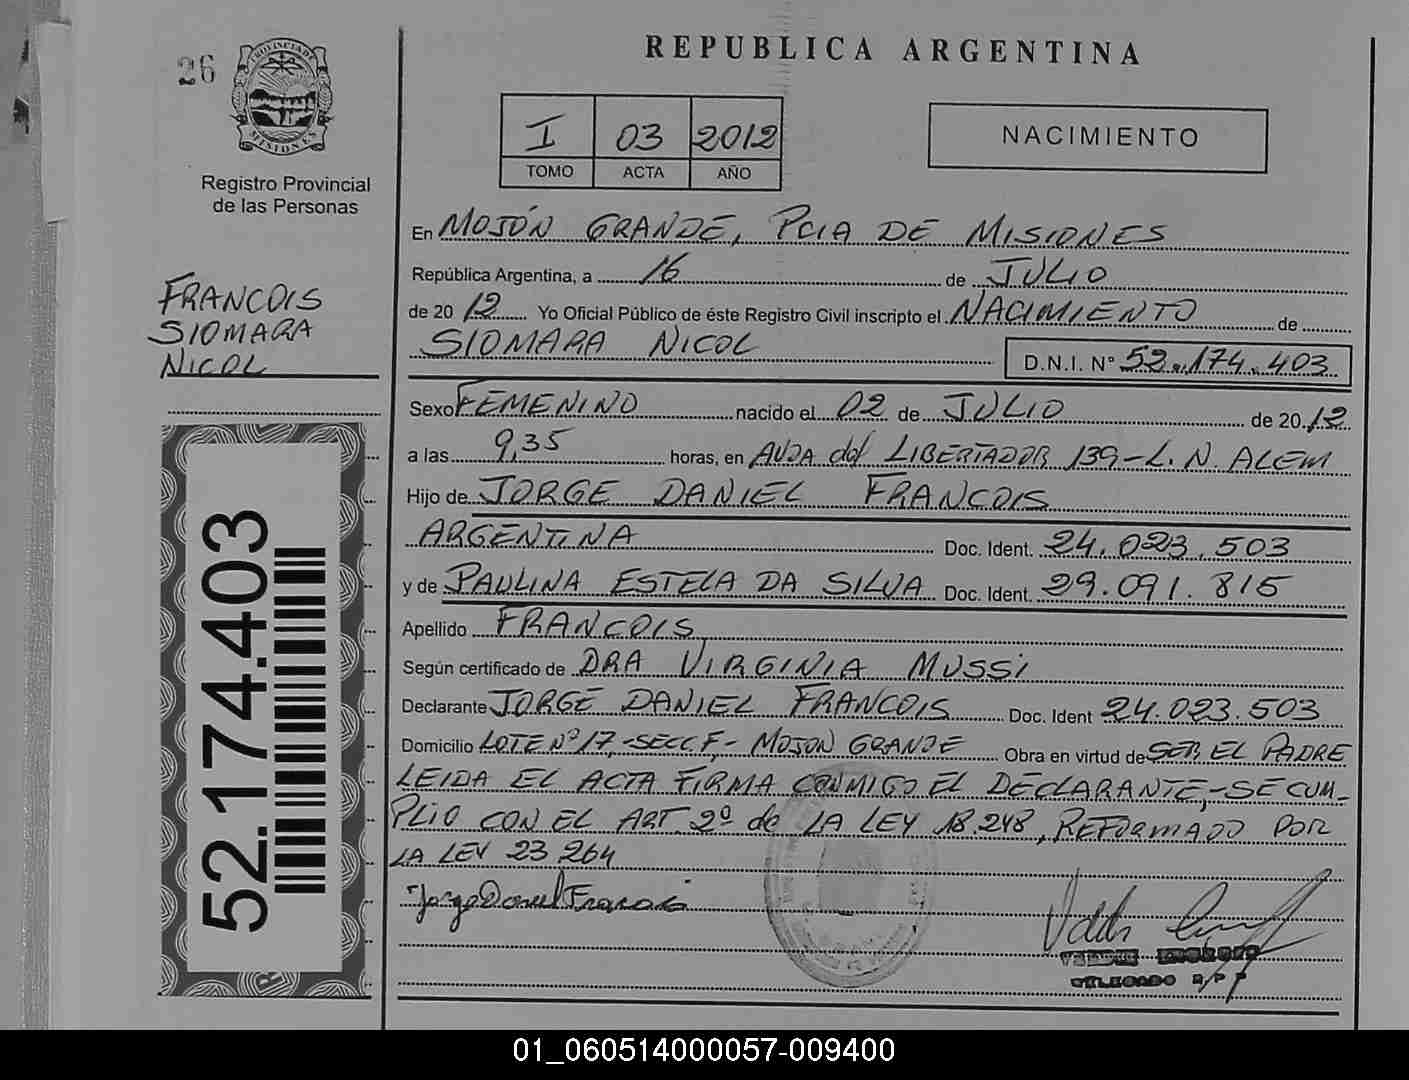 26
PROVINCIA DE
MISIONES
Registro Provincial
de las Personas
FRANCOIS
SIOMARA
NICOL
52.174.403
REPUBLICA ARGENTINA
I 03 2012
TOMO ACTA AÑO
NACIMIENTO
En MOJÓN GRANDE, PCIA DE MISIONES
República Argentina, a 16 de JULIO
de 20 12 Yo Oficial Público de éste Registro Civil inscripto el NACIMIENTO de
SIOMARA NICOL D.N.I. N° 52.174.403
Sexo FEMENINO nacido el 02 de JULIO de 20 12
a las 9,35 horas, en AVDA del LIBERTADOR 139-L.N. ALEM
Hijo de JORGE DANIEL FRANCOIS
ARGENTINA Doc. Ident. 24.023.503
y de PAULINA ESTELA DA SILVA Doc. Ident. 29.091.815
Apellido FRANCOIS
Según certificado de DRA VIRGINIA MUSSI
Declarante JORGE DANIEL FRANCOIS Doc. Ident 24.023.503
Domicilio LOTE Nº 17,-SECC.F,- MOJON GRANDE Obra en virtud de SER EL PADRE
LEIDA EL ACTA FIRMA CONMIGO EL DECLARANTE,-SE CUM-
PLIO CON EL ART. 2º de LA LEY 18.248, REFORMADO POR
LA LEY 23 264
Jorge Daniel Francois
DELEGADO R.P.P
01_060514000057-009400